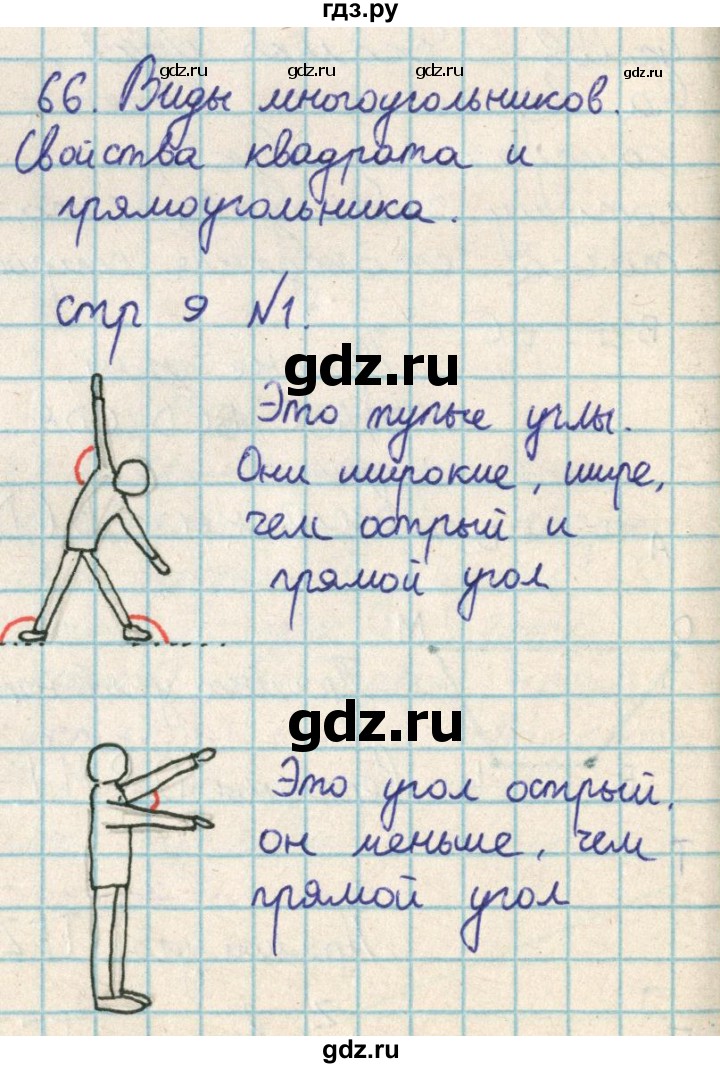 гдз.ру
gdz.ru gdz.ru gdz.ru gdz.ru
66. Виды многоугольников.
Свойства квадрата и
прямоугольника.
стр 9 №1.
gdz.ru
Это тупые углы.
Они широкие, шире,
чем острый и
прямой угол
gdz.ru
Это угол острый,
он меньше, чем
прямой угол
gdz.ru